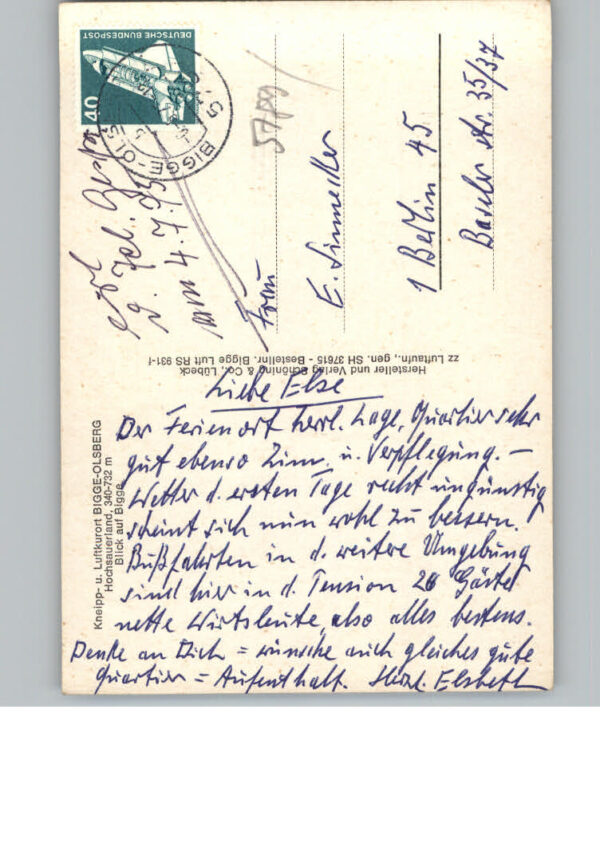 DEUTSCHE BUNDESPOST
40
BIGGE-OLSBERG
5789
Frau
E. Sinnecker
1 Berlin 45
Baseler Str. 35/37
am 4.7.
Hersteller und Verlag Schöning & Co., Lübeck
zz Luftaufn., gen. SH 37615 - Bestellnr. Bigge Luft RS 931-f
Kneipp- u. Luftkurort BIGGE-OLSBERG
Hochsauerland, 340-732 m
Blick auf Bigge
Liebe Else
Der Ferienort herrl. Lage, Quartier sehr
gut ebenso Zim. u. Verpflegung. –
Wetter d. ersten Tage recht ungünstig
scheint sich nun wohl zu bessern.
Bußfahrten in d. weitere Umgebung
sind hier in d. Pension 26 Gäste
nette Wirtsleute, also alles bestens.
Denke an Dich = wünsche auch gleiches gute
Quartier = Aufenthalt. Herzl. Elsbeth